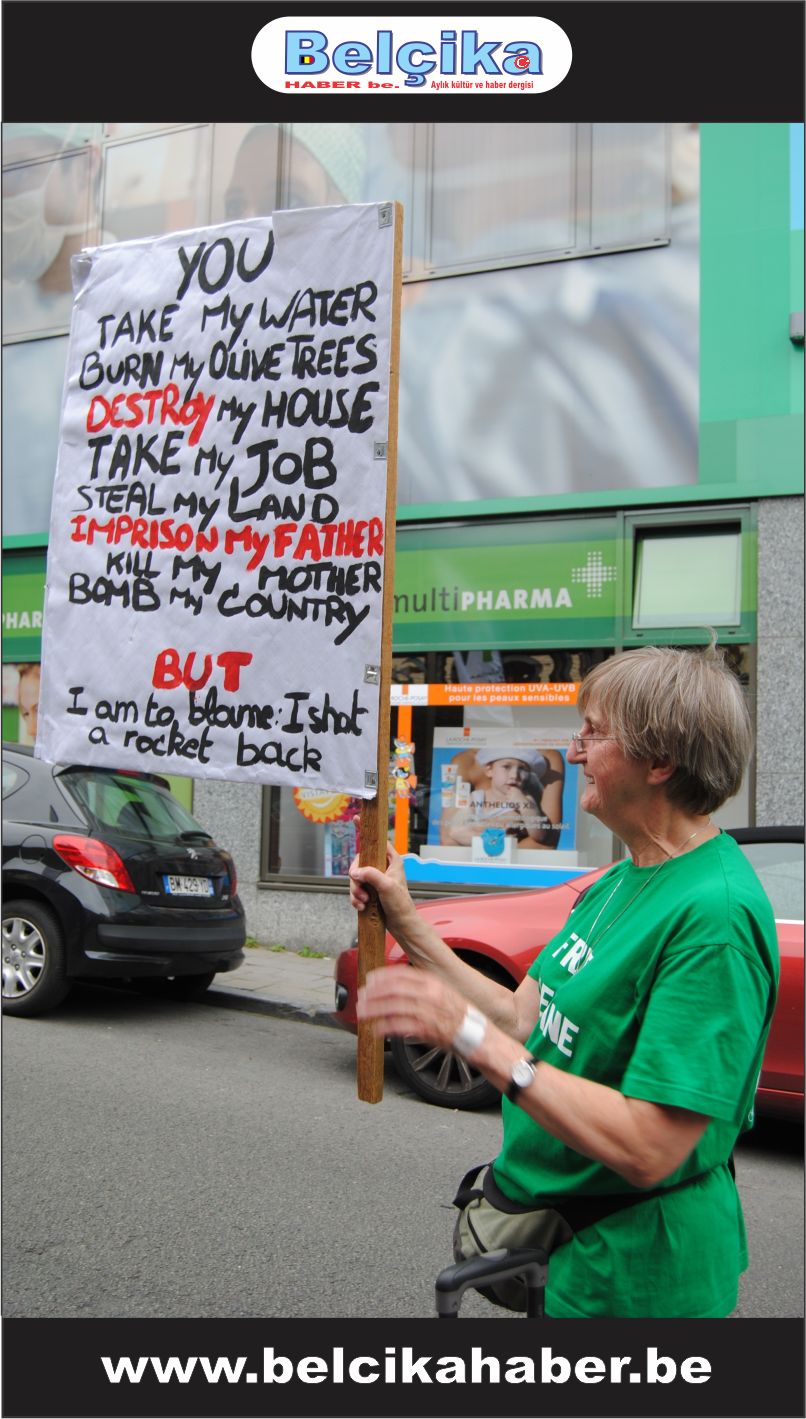 Belçika
HABER be. Aylık kültür ve haber dergisi
YOU
TAKE My WATER
BURN My OLIVE TREES
DESTROy My HOUSE
TAKE My JOB
STEAL My LAND
IMPRISON My FATHER
KILL My MOTHER
BOMB My COUNTRY
BUT
I am to blame: I shot
a rocket back
PHAR
multiPHARMA
Haute protection UVA-UVB
pour les peaux sensibles
LA ROCHE-POSAY
ANTHELIOS XL
BM 429 YD
www.belcikahaber.be